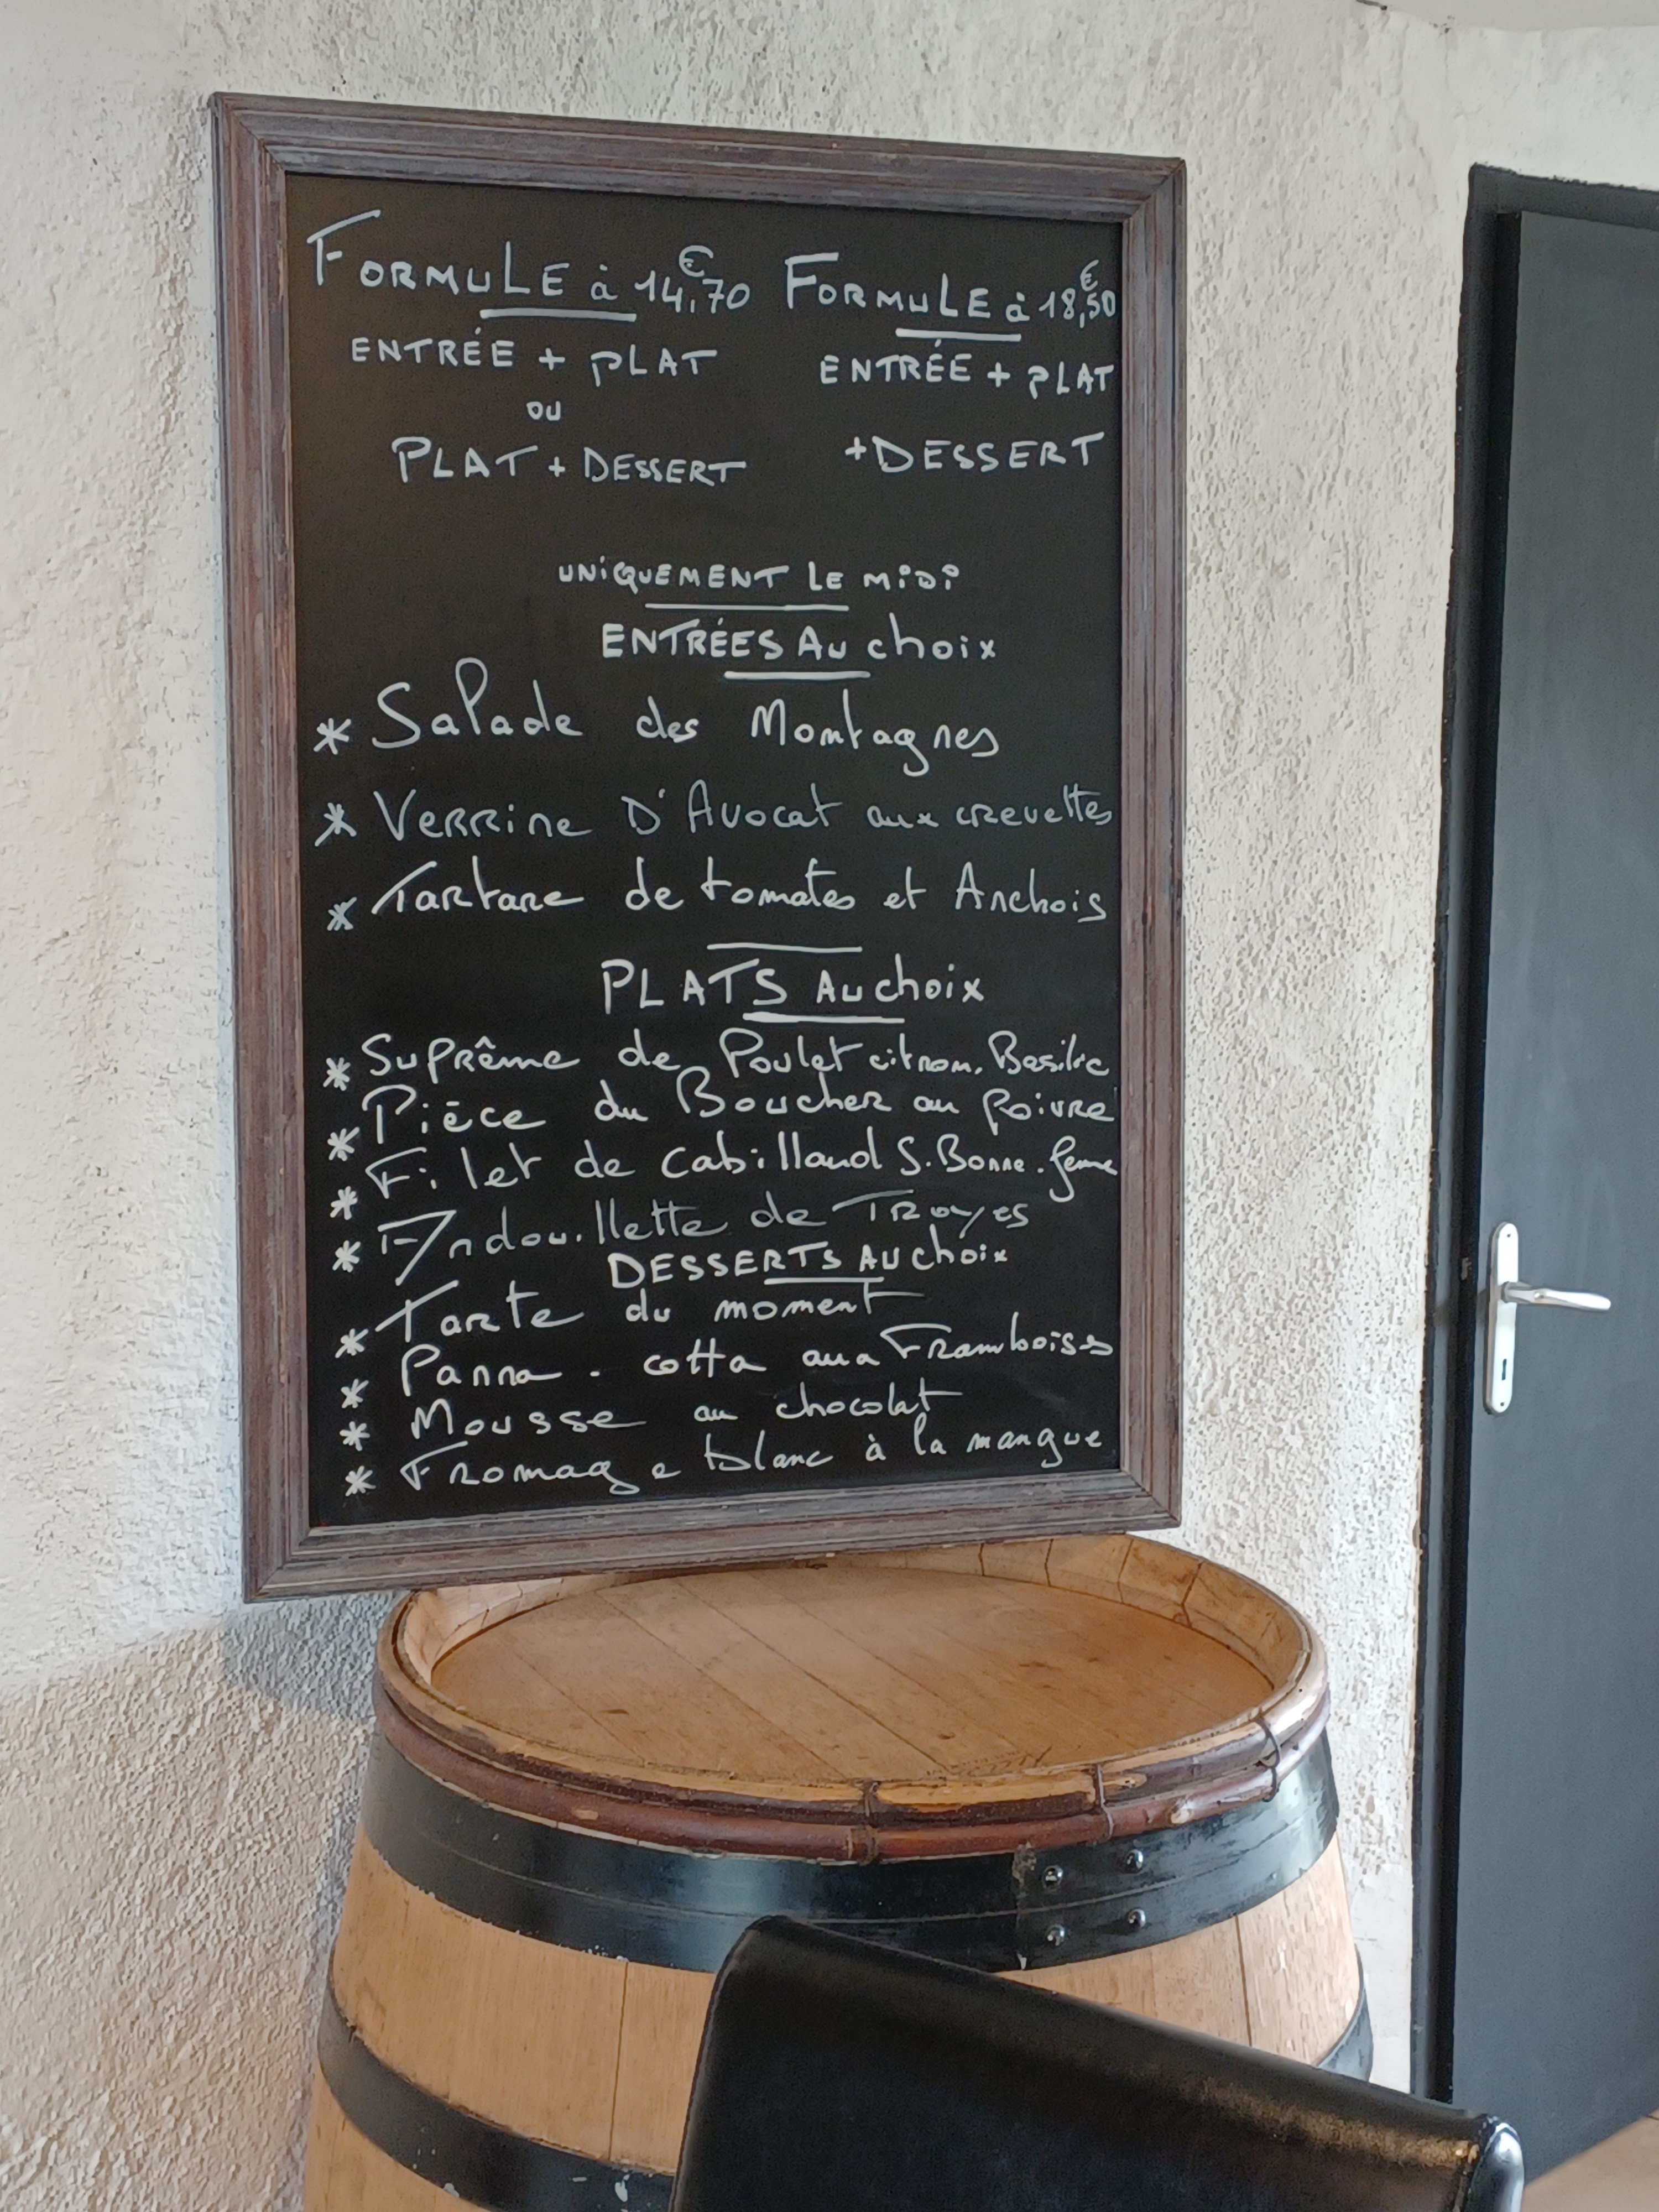 FORMULE à 14,€70
ENTRÉE + PLAT
OU
PLAT + DESSERT
FORMULE à 18,€50
ENTRÉE + PLAT
+DESSERT
UNIQUEMENT LE MIDI
ENTRÉES AU choix
* Salade des Montagnes
* Verrine D'Avocat aux crevettes
* Tartare de tomates et Anchois
PLATS AU choix
* Suprême de Poulet citron. Basilic
* Pièce du Boucher au poivre
* Filet de cabillaud S. Bonne. femme
* Andouillette de Troyes
DESSERTS AU choix
* Tarte du moment
* Panna. cotta aux Framboises
* Mousse au chocolat
* Fromage blanc à la mangue